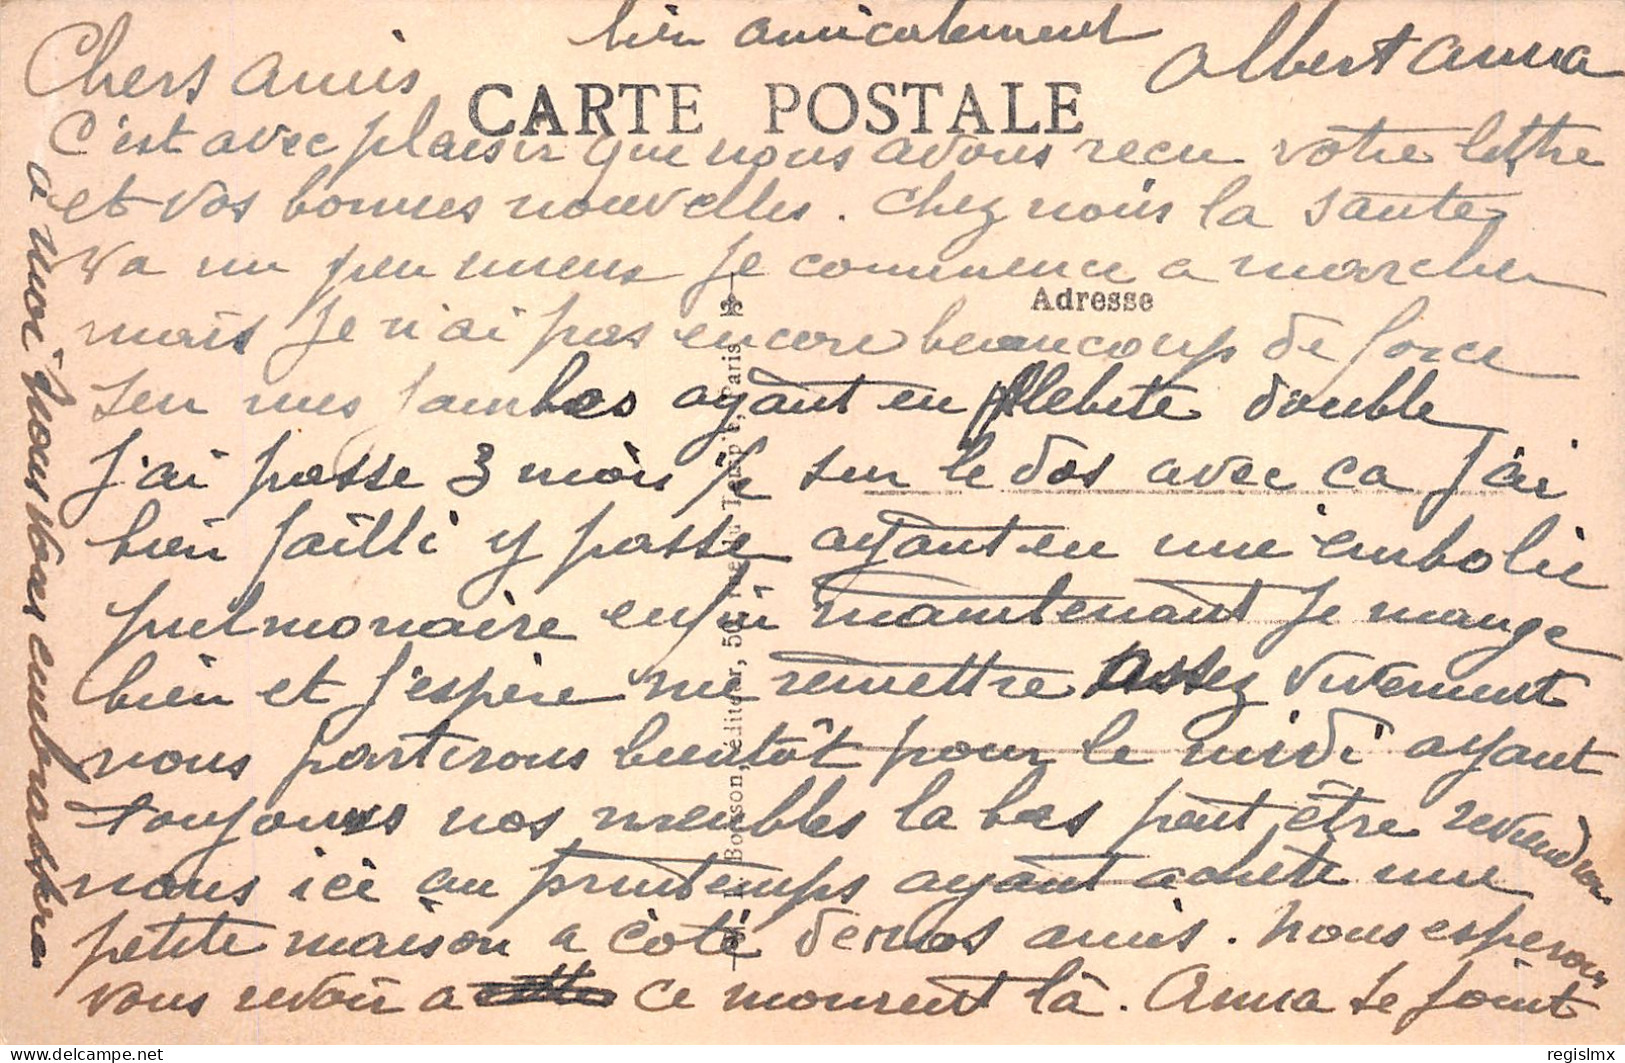 Chers amis
CARTE POSTALE
C'est avec plaisir que nous avons recu votre lettre
et vos bonnes nouvelles. Chez nous la santé
va un peu mieux je commence a marcher
Adresse
mais je n'ai pas encore beaucoup de force
sur mes jambes ayant eu phlebite double
j'ai passe 3 mois ½ sur le dos avec ca j'ai
bien failli y passe ayant eu une embolie
pulmonaire enfin maintenant je mange
bien et j'espère me remettre assez vivement
nous partirons bientôt pour le midi ayant
toujours nos meubles la bas peut être reviendron
nous ici au printemps ayant achete une
petite maison a côté de nos amis. nous esperons
vous revoir a ce moment là. Anna se joint
a moi nous vous embrassons
bien amicalement
Albert Anna
Boisson, éditeur, 50, rue du Temple, Paris
delcampe.net
regislmx